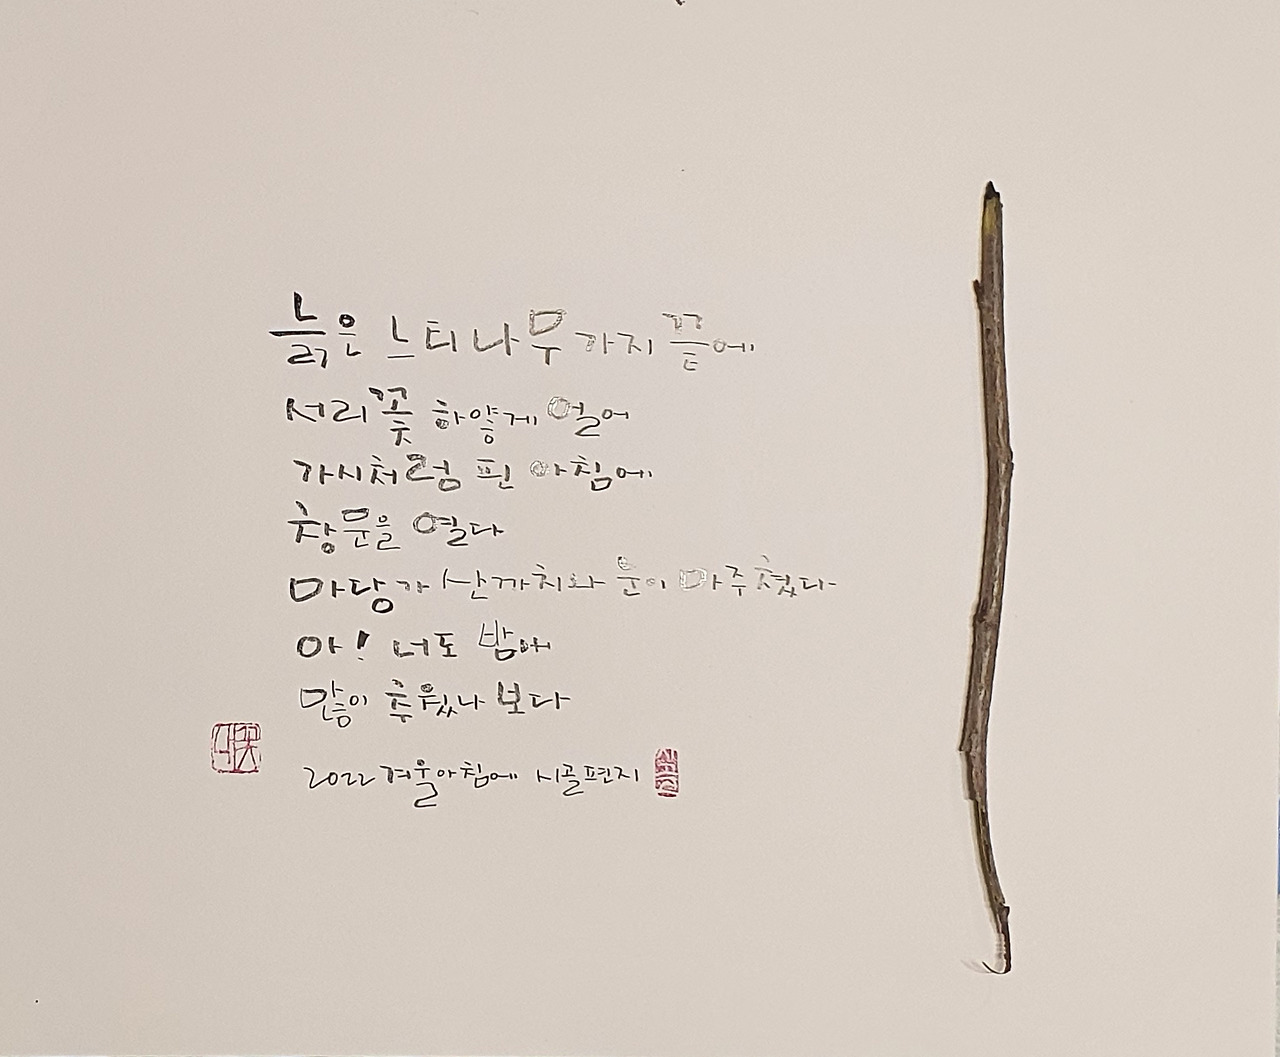 늙은 느티나무 가지 끝에
서리꽃 하얗게 얼어
가시처럼 핀 아침에
창문을 열다
마당가 산까치와 눈이 마주쳤다
아! 너도 밤에
많이 추웠나 보다
2022 겨울아침에 시골편지